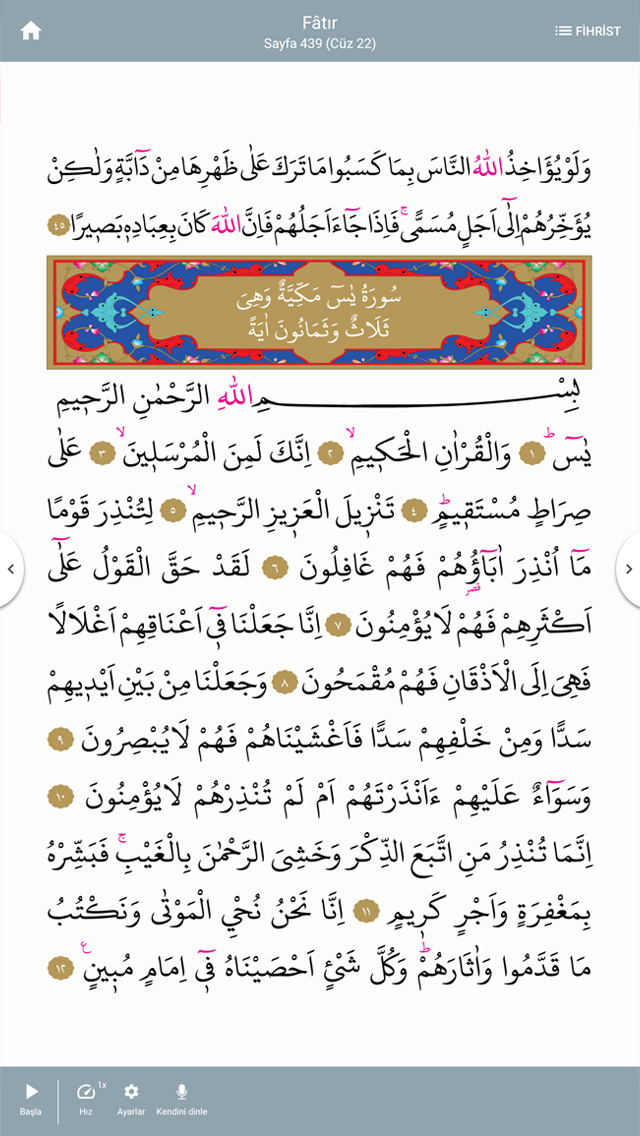 Fâtır
Sayfa 439 (Cüz 22)
FİHRİST
وَلَوْ يُؤَاخِذُ اللّٰهُ النَّاسَ بِمَا كَسَبُوا مَا تَرَكَ عَلٰى ظَهْرِهَا مِنْ دَٓابَّةٍ وَلٰكِنْ
يُؤَخِّرُهُمْ اِلٰٓى اَجَلٍ مُسَمًّىۚ فَاِذَا جَٓاءَ اَجَلُهُمْ فَاِنَّ اللّٰهَ كَانَ بِعِبَادِه۪ بَص۪يرًا ٤٥
سُورَةُ يٰسٓ مَكِّيَّةٌ وَهِىَ
ثَلَاثٌ وَثَمَانُونَ اٰيَةً
بِسْمِ اللّٰهِ الرَّحْمٰنِ الرَّح۪يمِ
يٰسٓۜ ١ وَالْقُرْاٰنِ الْحَك۪يمِۙ ٢ اِنَّكَ لَمِنَ الْمُرْسَل۪ينَۙ ٣ عَلٰى
صِرَاطٍ مُسْتَق۪يمٍۜ ٤ تَنْز۪يلَ الْعَز۪يزِ الرَّح۪يمِۙ ٥ لِتُنْذِرَ قَوْمًا
مَٓا اُنْذِرَ اٰبَٓاؤُ۬هُمْ فَهُمْ غَافِلُونَ ٦ لَقَدْ حَقَّ الْقَوْلُ عَلٰٓى
اَكْثَرِهِمْ فَهُمْ لَا يُؤْمِنُونَ ٧ اِنَّا جَعَلْنَا ف۪ٓى اَعْنَاقِهِمْ اَغْلَالًا
فَهِىَ اِلَى الْاَذْقَانِ فَهُمْ مُقْمَحُونَ ٨ وَجَعَلْنَا مِنْ بَيْنِ اَيْد۪يهِمْ
سَدًّا وَمِنْ خَلْفِهِمْ سَدًّا فَاَغْشَيْنَاهُمْ فَهُمْ لَا يُبْصِرُونَ ٩
وَسَوَٓاءٌ عَلَيْهِمْ ءَاَنْذَرْتَهُمْ اَمْ لَمْ تُنْذِرْهُمْ لَا يُؤْمِنُونَ ١٠
اِنَّمَا تُنْذِرُ مَنِ اتَّبَعَ الذِّكْرَ وَخَشِىَ الرَّحْمٰنَ بِالْغَيْبِۚ فَبَشِّرْهُ
بِمَغْفِرَةٍ وَاَجْرٍ كَر۪يمٍ ١١ اِنَّا نَحْنُ نُحْيِ الْمَوْتٰى وَنَكْتُبُ
مَا قَدَّمُوا وَاٰثَارَهُمْۜ وَكُلَّ شَىْءٍ اَحْصَيْنَاهُ ف۪ٓى اِمَامٍ مُب۪ينٍ۟ ١٢
Başla
Hız
1x
Ayarlar
Kendini dinle